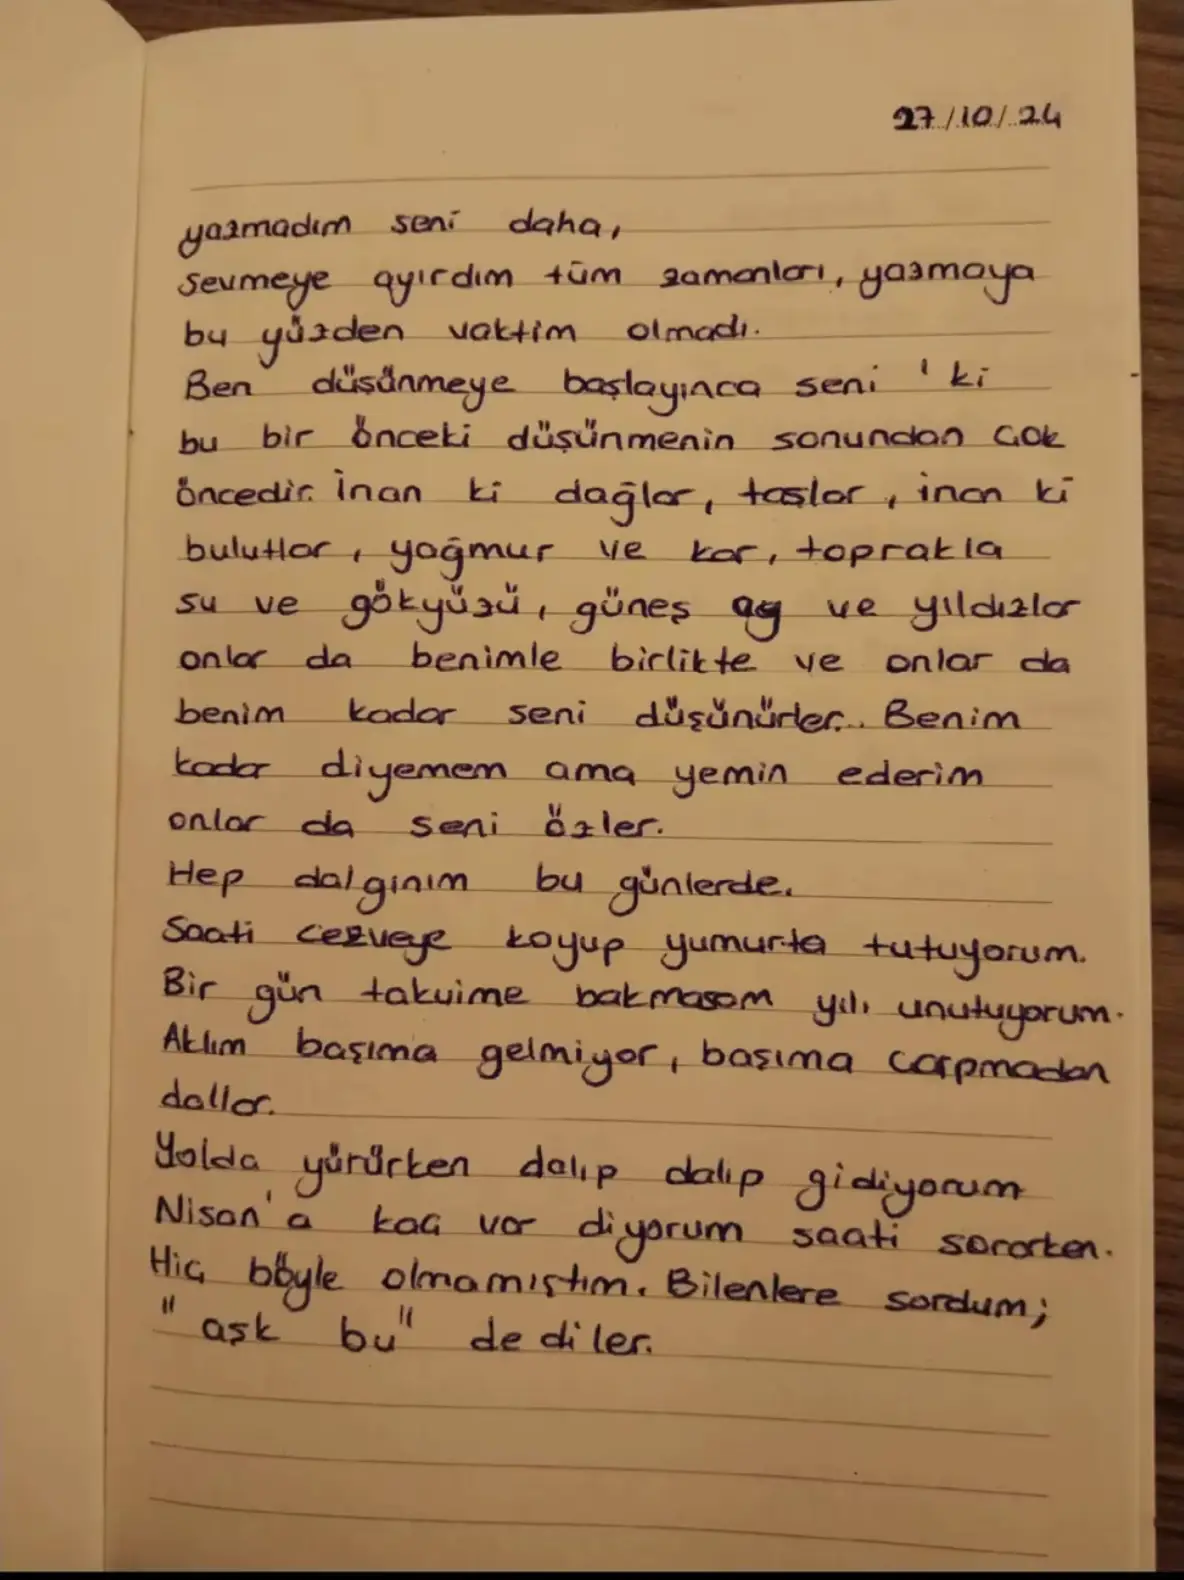 27/10/24
yazmadım seni daha,
sevmeye ayırdım tüm zamanları, yazmaya
bu yüzden vaktim olmadı.
Ben düşünmeye başlayınca seni 'ki
bu bir önceki düşünmenin sonundan çok
öncedir. İnan ki dağlar, taşlar, inan ki
bulutlar, yağmur ve kar, toprakla
su ve gökyüzü, güneş ay ve yıldızlar
onlar da benimle birlikte ve onlar da
benim kadar seni düşünürler.. Benim
kadar diyemem ama yemin ederim
onlar da seni özler.
Hep dalgınım bu günlerde.
Saati cezveye koyup yumurta tutuyorum.
Bir gün takvime bakmasam yılı unutuyorum.
Aklım başıma gelmiyor, başıma çarpmadan
dallar.
Yolda yürürken dalıp dalıp gidiyorum
Nisan'a kaç var diyorum saati sorarken.
Hiç böyle olmamıştım. Bilenlere sordum;
"aşk bu" dediler.